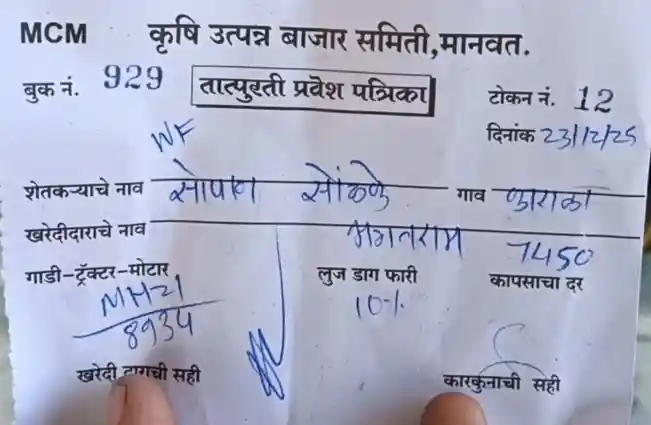 MCM कृषि उत्पन्न बाजार समिती,मानवत.
बुक नं. 929 तात्पुरती प्रवेश पत्रिका टोकन नं. 12
दिनांक 23/12/25
WF
शेतकऱ्याचे नाव सोपान सोंळके गाव
खरेदीदाराचे नाव भगतराम 7450
गाडी-ट्रॅक्टर-मोटार लुज डाग फारी कापसाचा दर
MH21 10%
8934
खरेदी दागची सही कारकुनाची सही